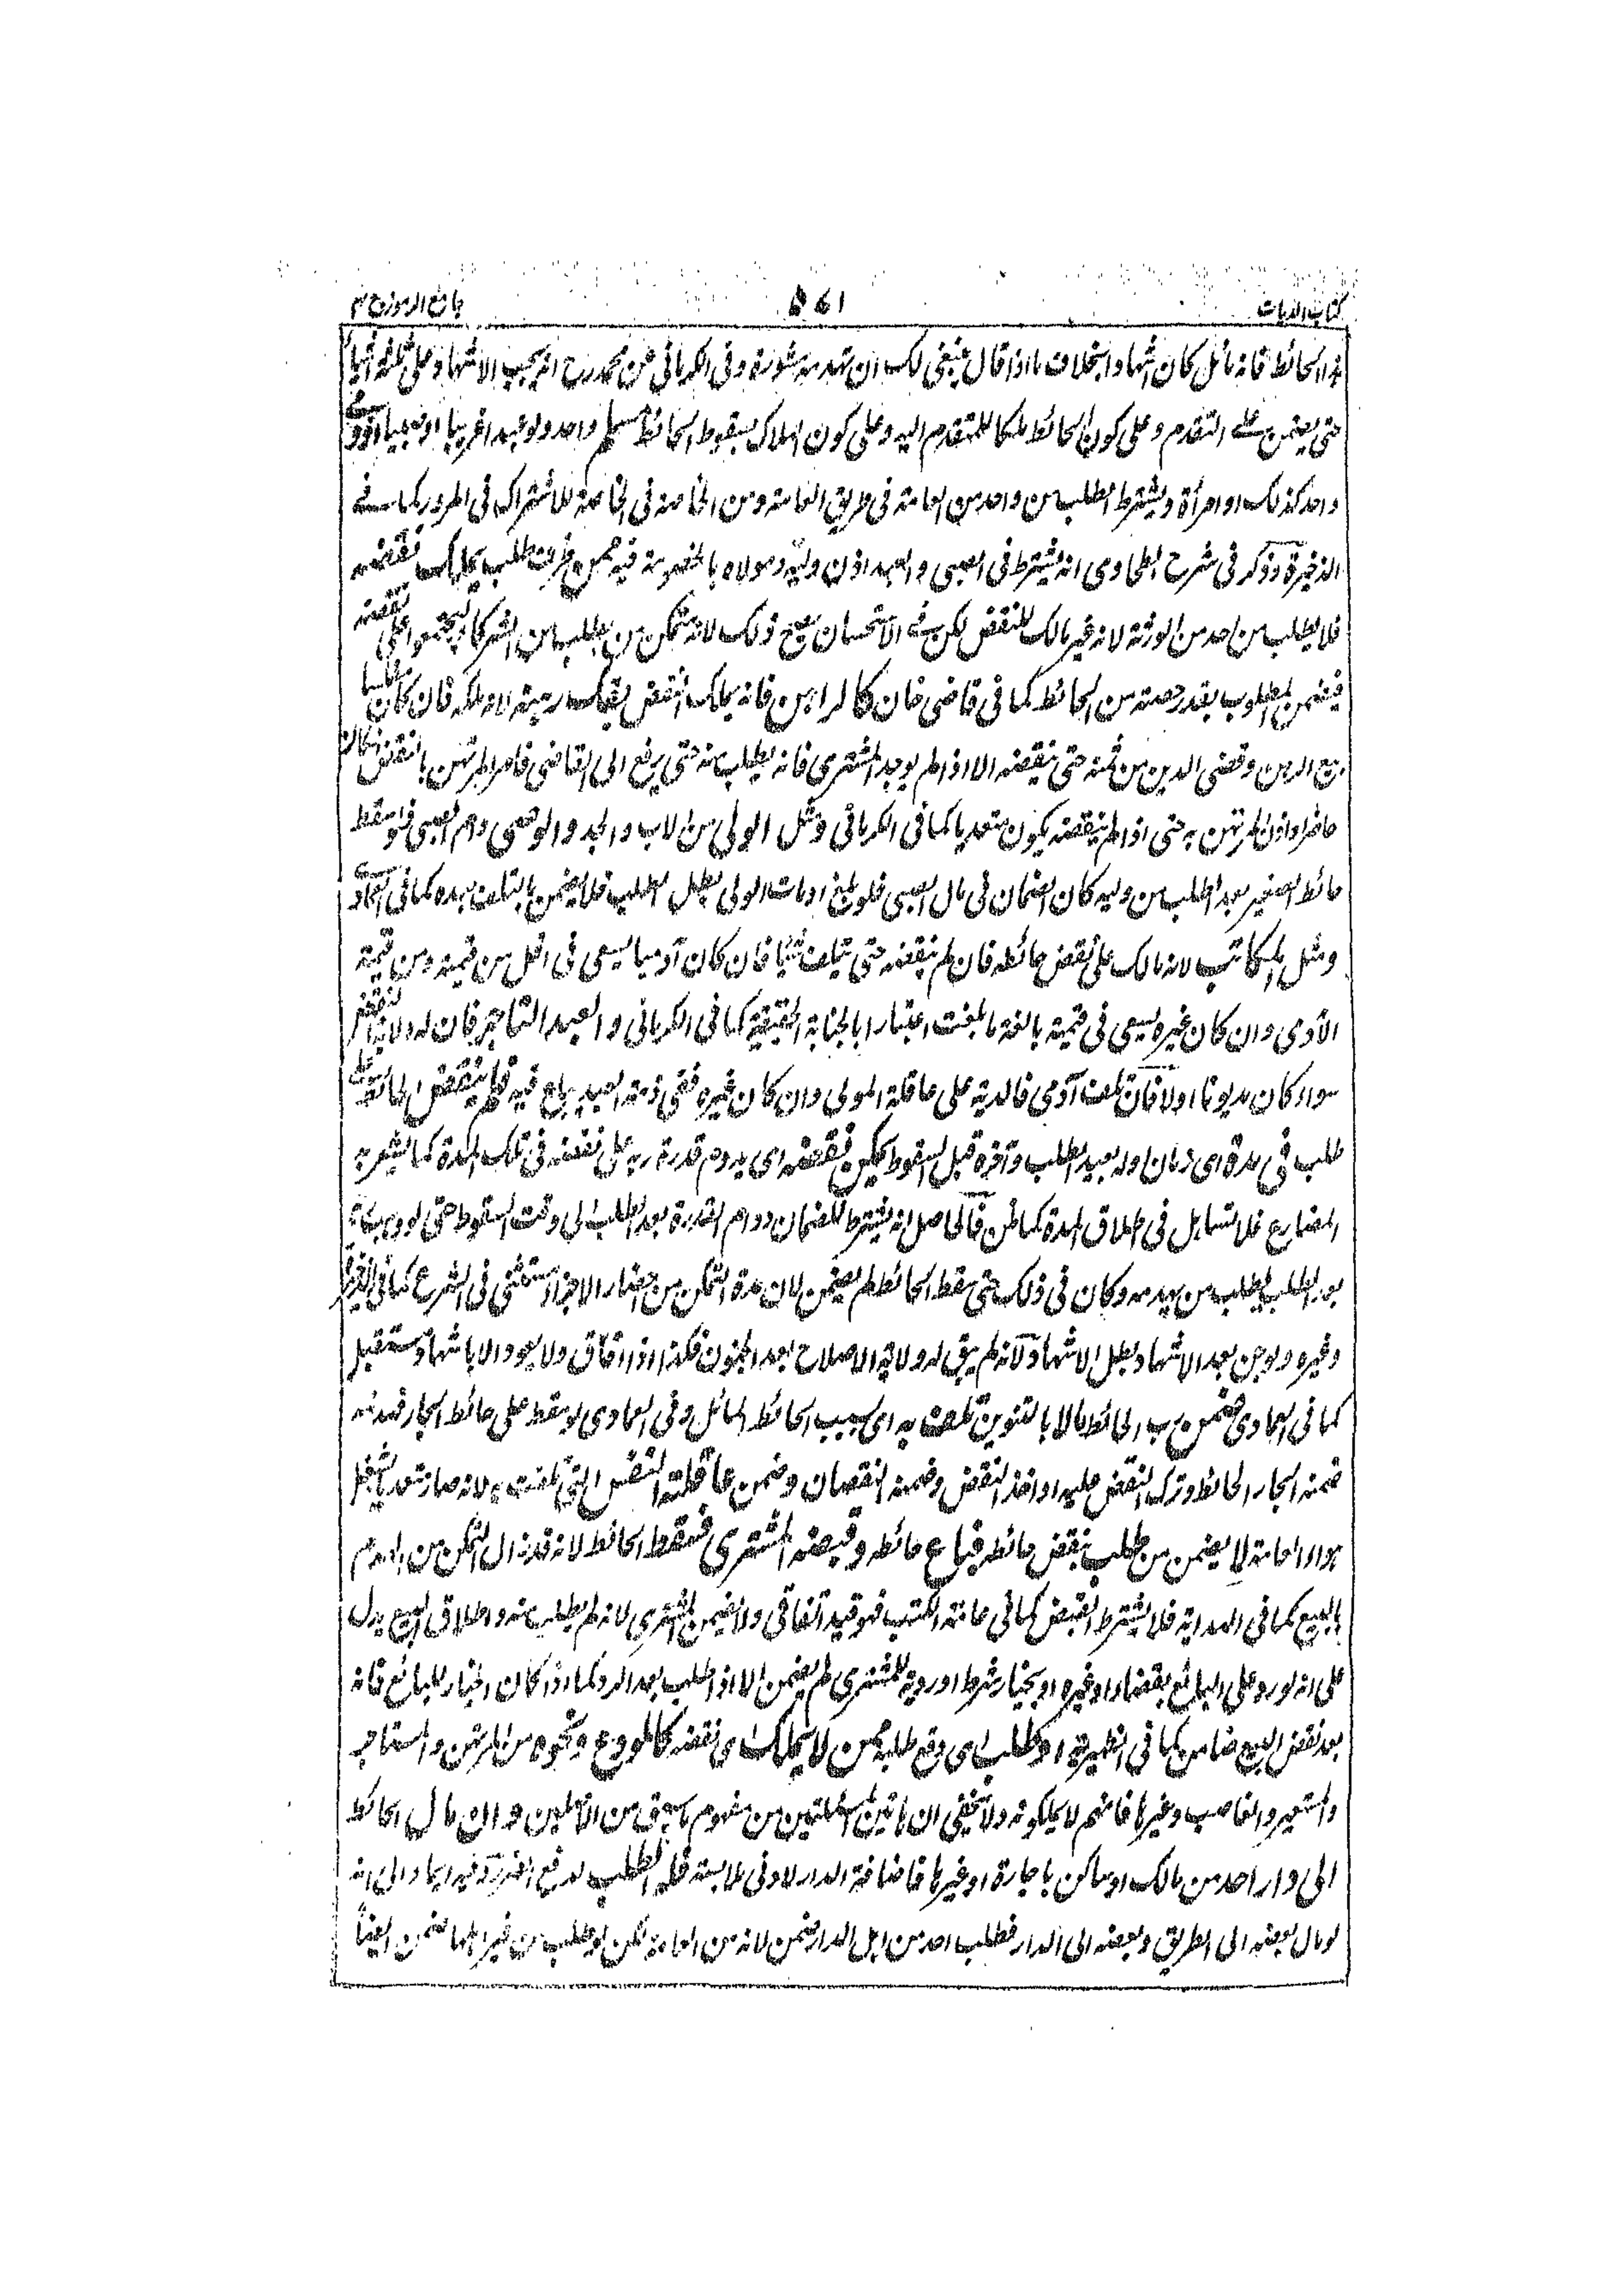 كتاب الديات ٥٤١ جامع الرموز ج ٢
هذا الحائط فانه مائل كان اشهادا بخلاف ما اذا قال ينبغي لك ان تهدمه مشورة وفي الكرماني عن محمد رح انه يجب الاشهاد على ثلثة اشياء
حتى يضمن على التقدم وعلى كون الحائط ملكا للمتقدم اليه وعلى كون الهلاك بسقوط الحائط مسلم واحد ولو عبدا غريبا او صبيا او
واحد كذلك او امرأة ويشترط الطلب من واحد من العامة في طريق العامة ومن الخاصة في الخاصة للاشتراك في المرور كما في
الذخيرة وذكر في شرح الطحاوي انه يشترط في الصبي والعبد اذن وليه ومولاه بالخصومة فيه ممن طلب يملك نقضه
فلا يطلب من احد من الورثة لانه غير مالك للنقض لكن في الاستحسان صح ذلك لانه متمكن من ان يطلب من الشركاء ليجتمعوا على نقضه
فيضمن المطلوب بقدر حصته من الحائط كما في قاضي خان كالراهن فانه يملك النقض بفك رهينه لانه ملكه فان كان
بيع الرهن وقضى الدين من ثمنه حتى ينقضه الا اذا لم يوجد المشتري فانه يطلب منه حتى يرفع الى القاضي فامر المرتهن بالنقض ان كان
حاضرا واذن المرتهن به حتى اذا لم ينقضه يكون متعديا كما في الكرماني ومثل الولي من الاب والجد والوصي وام الصبي فلو سقط
حائط الصغير بعد الطلب من وليه كان الضمان في مال الصبي فلو بلغ او مات الولي بطل الطلب فلا يضمن بالتلف بعده كما في العمادي
ومثل المكاتب لانه مالك على نقض حائطه فان لم ينقضه حتى يتلف شيئا فان كان آدميا يسعى في اقل من قيمته ومن قيمة
الآدمي وان كان غيره يسعى في قيمته بالغة ما بلغت اعتبارا بالجناية الحقيقية كما في الكرماني والعبد التاجر فان له ولاية النقض
سواء كان مديونا او لا فان تلف آدمي فالدية على عاقلة المولى وان كان غيره ففي ذمة العبد يباع فيه فلم ينقض الحائط
طلب في مدة اي زمان اوله بعيد الطلب وآخره قبل السقوط يمكن نقضه اي يدوم قدرة ربه على نقضه في تلك المدة كما يشعر به
المضارع فلا تساهل في اطلاق المدة كما ظن فالحاصل انه يشترط للضمان دوام القدرة بعد الطلب الى وقت السقوط حتى لو
بعد الطلب ليطلب من يهدمه وكان في ذلك حتى سقط الحائط لم يضمن لان مدة التمكن من احضار الاجراء مستثنى في الشرع كما في الذخيرة
وغيره ولو جن بعد الاشهاد بطل الاشهاد لانه لم يبق له ولاية الاصلاح بعد الجنون فكذا اذا افاق ولا يعود الا باشهاد مستقبل
كما في العمادي ضمن رب الحائط مالا بالتنوين تلف به اي بسبب الحائط المائل وفي العمادي لو سقط على حائط الجار فهدمه
ضمنه الجار الحائط وترك النقض عليه او اخذ النقض وضمنه النقصان وضمن عاقلته النفس التي تلفت به لانه صار متعديا بشغل
هواء العامة لا يضمن من طلب بنقض حائطه فباع حائطه وقبضه المشتري فسقط الحائط لانه قد زال التمكن من الهدم
بالبيع كما في الهداية فلا يشترط القبض كما في عامة الكتب فهو قيد اتفاقي ولا يضمن المشتري لانه لم يطلب منه واطلاق البيع يدل
على انه لو رد على البائع بقضاء او غيره او بخيار شرط او روية للمشتري لم يضمن الا اذا طلب بعد الرد كما اذا كان الخيار للبائع فانه
بعد نقض البيع ضامن كما في الظهيرية او طلب اي وقع طلبه ممن لا يملك اي نقضه كالمودع ونحوه من المرتهن والمستاجر
والمستعير والغاصب وغيرها فانهم لا يملكونه ولا يخفى ان هاتين المسئلتين من مفهوم ما سبق من الاصلين وان مال الحائط
الى دار احد من مالك او ساكن باجارة او غيرها فاضافة الدار لادنى ملابسة فله الطلب لدفع الضرر وفيه ايماء الى انه
لو مال بعضه الى الطريق وبعضه الى الدار فطلب احد من اهل الدار ضمن لانه من العامة لكن لو طلب من غير اهلها ضمن ايضا